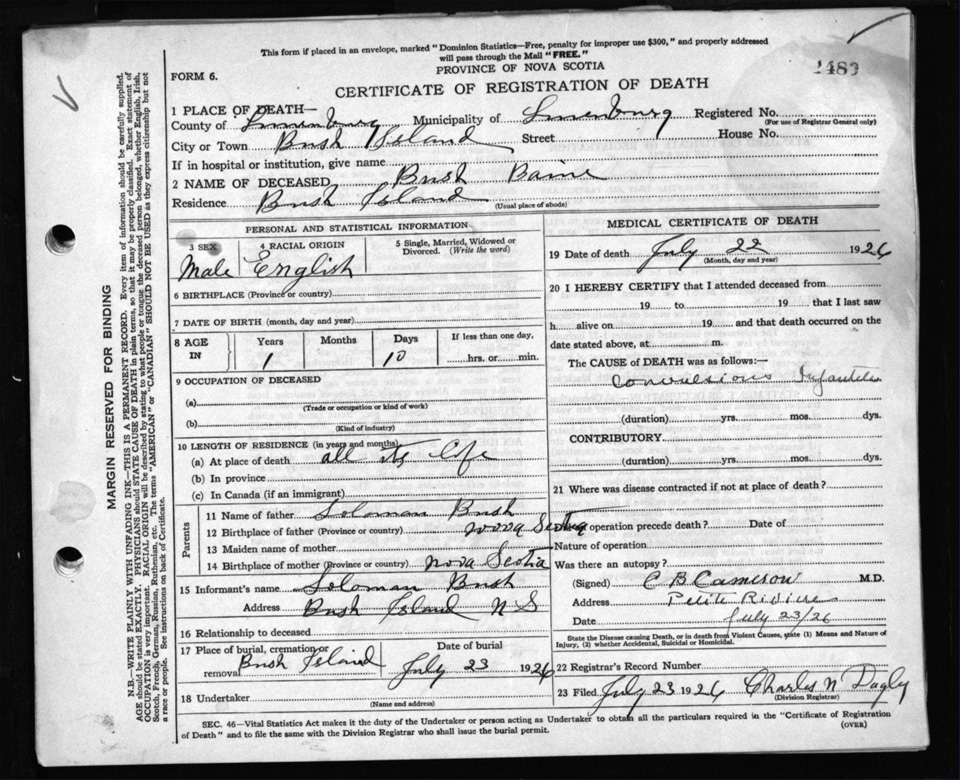 This form if placed in an envelope, marked "Dominion Statistics—Free, penalty for improper use $300," and properly addressed
will pass through the Mail "FREE."
PROVINCE OF NOVA SCOTIA
1483
FORM 6.
CERTIFICATE OF REGISTRATION OF DEATH
1 PLACE OF DEATH—
County of Lunenburg Municipality of Lunenburg Registered No.
(For use of Registrar General only)
City or Town Bush Island Street House No.
If in hospital or institution, give name
2 NAME OF DECEASED Bush
Residence Bush Island
(Usual place of abode)
PERSONAL AND STATISTICAL INFORMATION
3 SEX 4 RACIAL ORIGIN 5 Single, Married, Widowed or Divorced. (Write the word)
Male English
6 BIRTHPLACE (Province or country)
7 DATE OF BIRTH (month, day and year)
8 AGE IN Years Months Days If less than one day,
1 10 hrs. or min.
9 OCCUPATION OF DECEASED
(a)
(Trade or occupation or kind of work)
(b)
(Kind of industry)
10 LENGTH OF RESIDENCE (in years and months)
(a) At place of death all its Life
(b) In province
(c) In Canada (if an immigrant)
Parents
11 Name of father Soloman Bush
12 Birthplace of father (Province or country) Nova Scotia
13 Maiden name of mother
14 Birthplace of mother (Province or country) Nova Scotia
15 Informant's name Soloman Bush
Address Bush Island N S
16 Relationship to deceased
17 Place of burial, cremation or removal Date of burial
Bush Island July 23 1926
18 Undertaker
(Name and address)
MEDICAL CERTIFICATE OF DEATH
19 Date of death July 22 1926
(Month, day and year)
20 I HEREBY CERTIFY that I attended deceased from
19 to 19 that I last saw
h alive on 19 and that death occurred on the
date stated above, at m.
The CAUSE of DEATH was as follows:—
Convulsions Infantile
(duration) yrs. mos. dys.
CONTRIBUTORY
(duration) yrs. mos. dys.
21 Where was disease contracted if not at place of death?
Did an operation precede death? Date of
Nature of operation
Was there an autopsy?
(Signed) C B Cameron M.D.
Address Petite Riviere
Date July 23/26
State the Disease causing Death, or in death from Violent Causes, state (1) Means and Nature of
Injury, (2) whether Accidental, Suicidal or Homicidal.
22 Registrar's Record Number
23 Filed July 23 1926 Charles N
(Division Registrar)
SEC. 46—Vital Statistics Act makes it the duty of the Undertaker or person acting as Undertaker to obtain all the particulars required in the "Certificate of Registration
of Death" and to file the same with the Division Registrar who shall issue the burial permit.
(OVER)
MARGIN RESERVED FOR BINDING
N.B.—WRITE PLAINLY WITH UNFADING INK—THIS IS A PERMANENT RECORD. Every item of information should be carefully supplied.
AGE should be stated EXACTLY. PHYSICIANS should STATE CAUSE OF DEATH in plain terms, so that it may be properly classified. Exact statement of
OCCUPATION is very important. RACIAL ORIGIN will be described by stating to what people or tongue the deceased person belonged, whether English, Irish,
Scotch, French, German, Russian, Ruthenian, etc. The terms "AMERICAN" or "CANADIAN" SHOULD NOT BE USED as they express citizenship but not
a race or people. See instructions on back of Certificate.